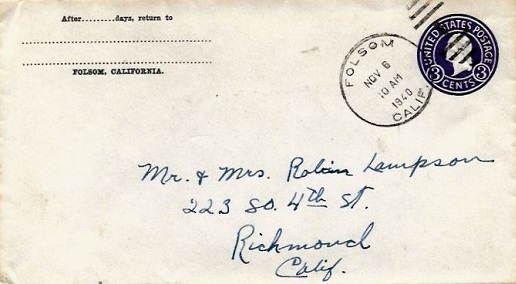 After.........days, return to
FOLSOM, CALIFORNIA.
FOLSOM
NOV 6
10 AM
1940
CALIF.
UNITED STATES POSTAGE
3 CENTS 3
Mr. & Mrs. Robin Lampson
223 So. 4th St.
Richmond
Calif.